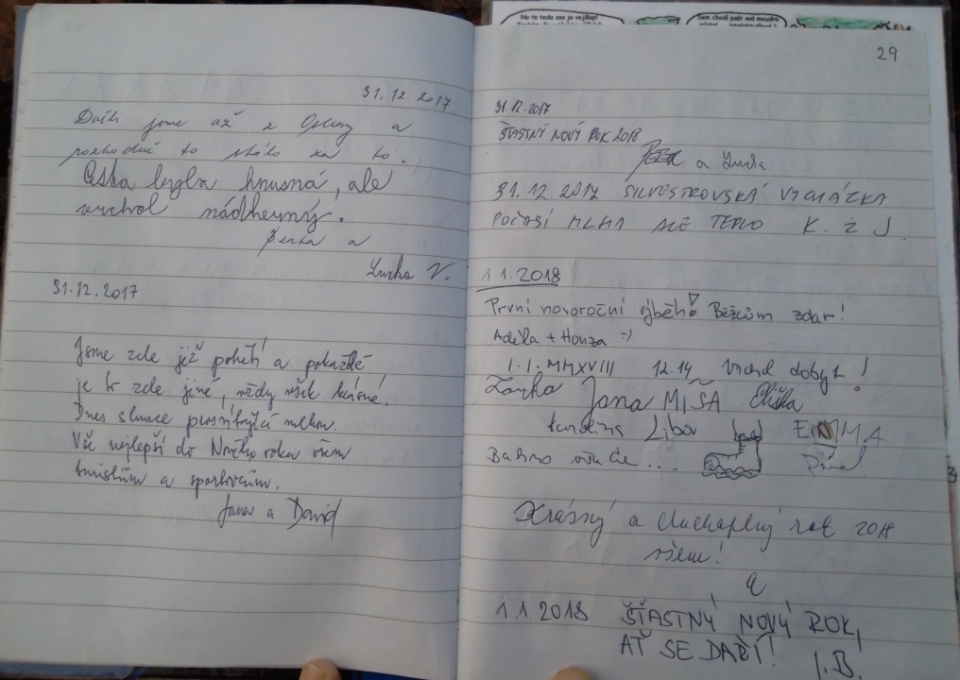 31.12.2017
Došli jsme až z Oslavy a
rozhodně to stálo za to.
Cesta byla hnusná, ale
vrchol nádherný.
a
Lucka V.
31.12.2017
Jsme zde již potřetí a pokaždé
je to zde jiné, vždy však krásné.
Dnes slunce prosvítající mlhou.
Vše nejlepší do Nového roku všem
turistům a sportovcům.
Jana a David
No to teda zse je vejšlap!
Sem chodí psát má moudra
29
31.12.2017
ŠŤASTNÝ NOVÝ ROK 2018
a Lucka
31.12.2017 SILVESTROVSKÁ VYCHÁZKA
POČASÍ MLHA ALE TEPLO K. Z J.
1.1.2018
První novoroční výběh! Běžcům zdar!
Adéla + Honza :-)
1.1.MMXVIII 12.14 Vrchol dobyt!
Lenka Jana MÍŠA Eliška
Karolína Libor EMMA
Bahno všude... Pavel
Krásný a duchaplný rok 2018
všem!
1.1.2018 ŠŤASTNÝ NOVÝ ROK,
AŤ SE DAŘÍ! I.B.